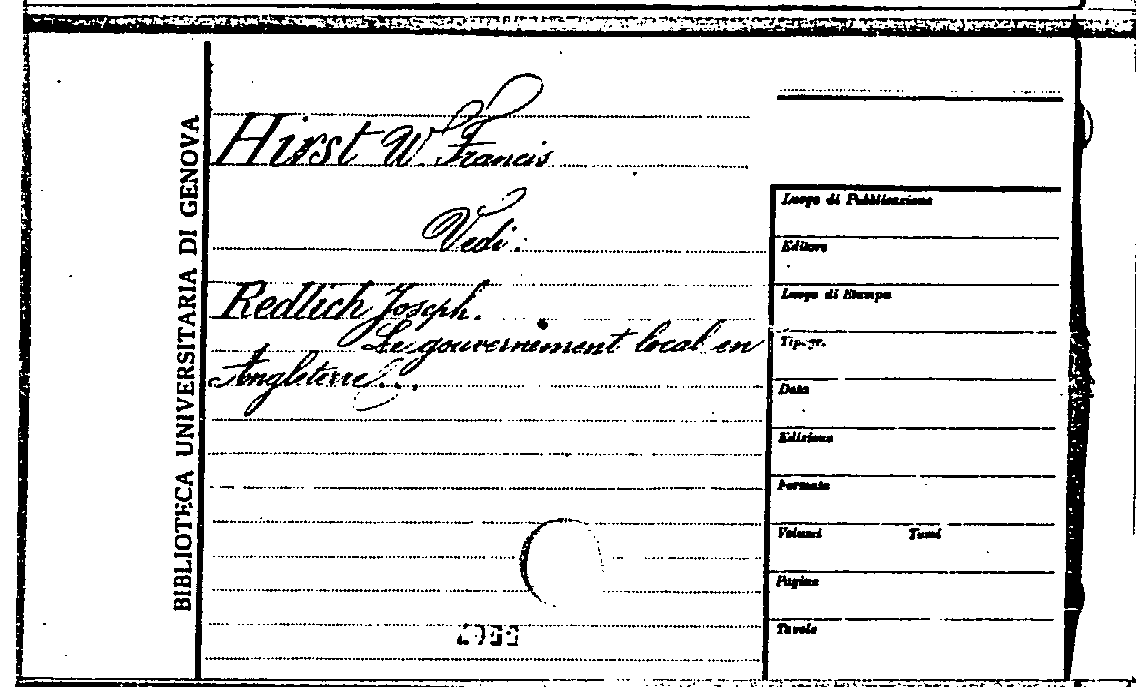 BIBLIOTECA UNIVERSITARIA DI GENOVA
Hirst W. Francis
Vedi:
Redlich Joseph.
Le gouvernement local en
Angleterre...
Luogo di Pubblicazione
Editore
Luogo di Stampa
Tipogr.
Data
Edizione
Formato
Volumi Tomi
Pagine
Tavole